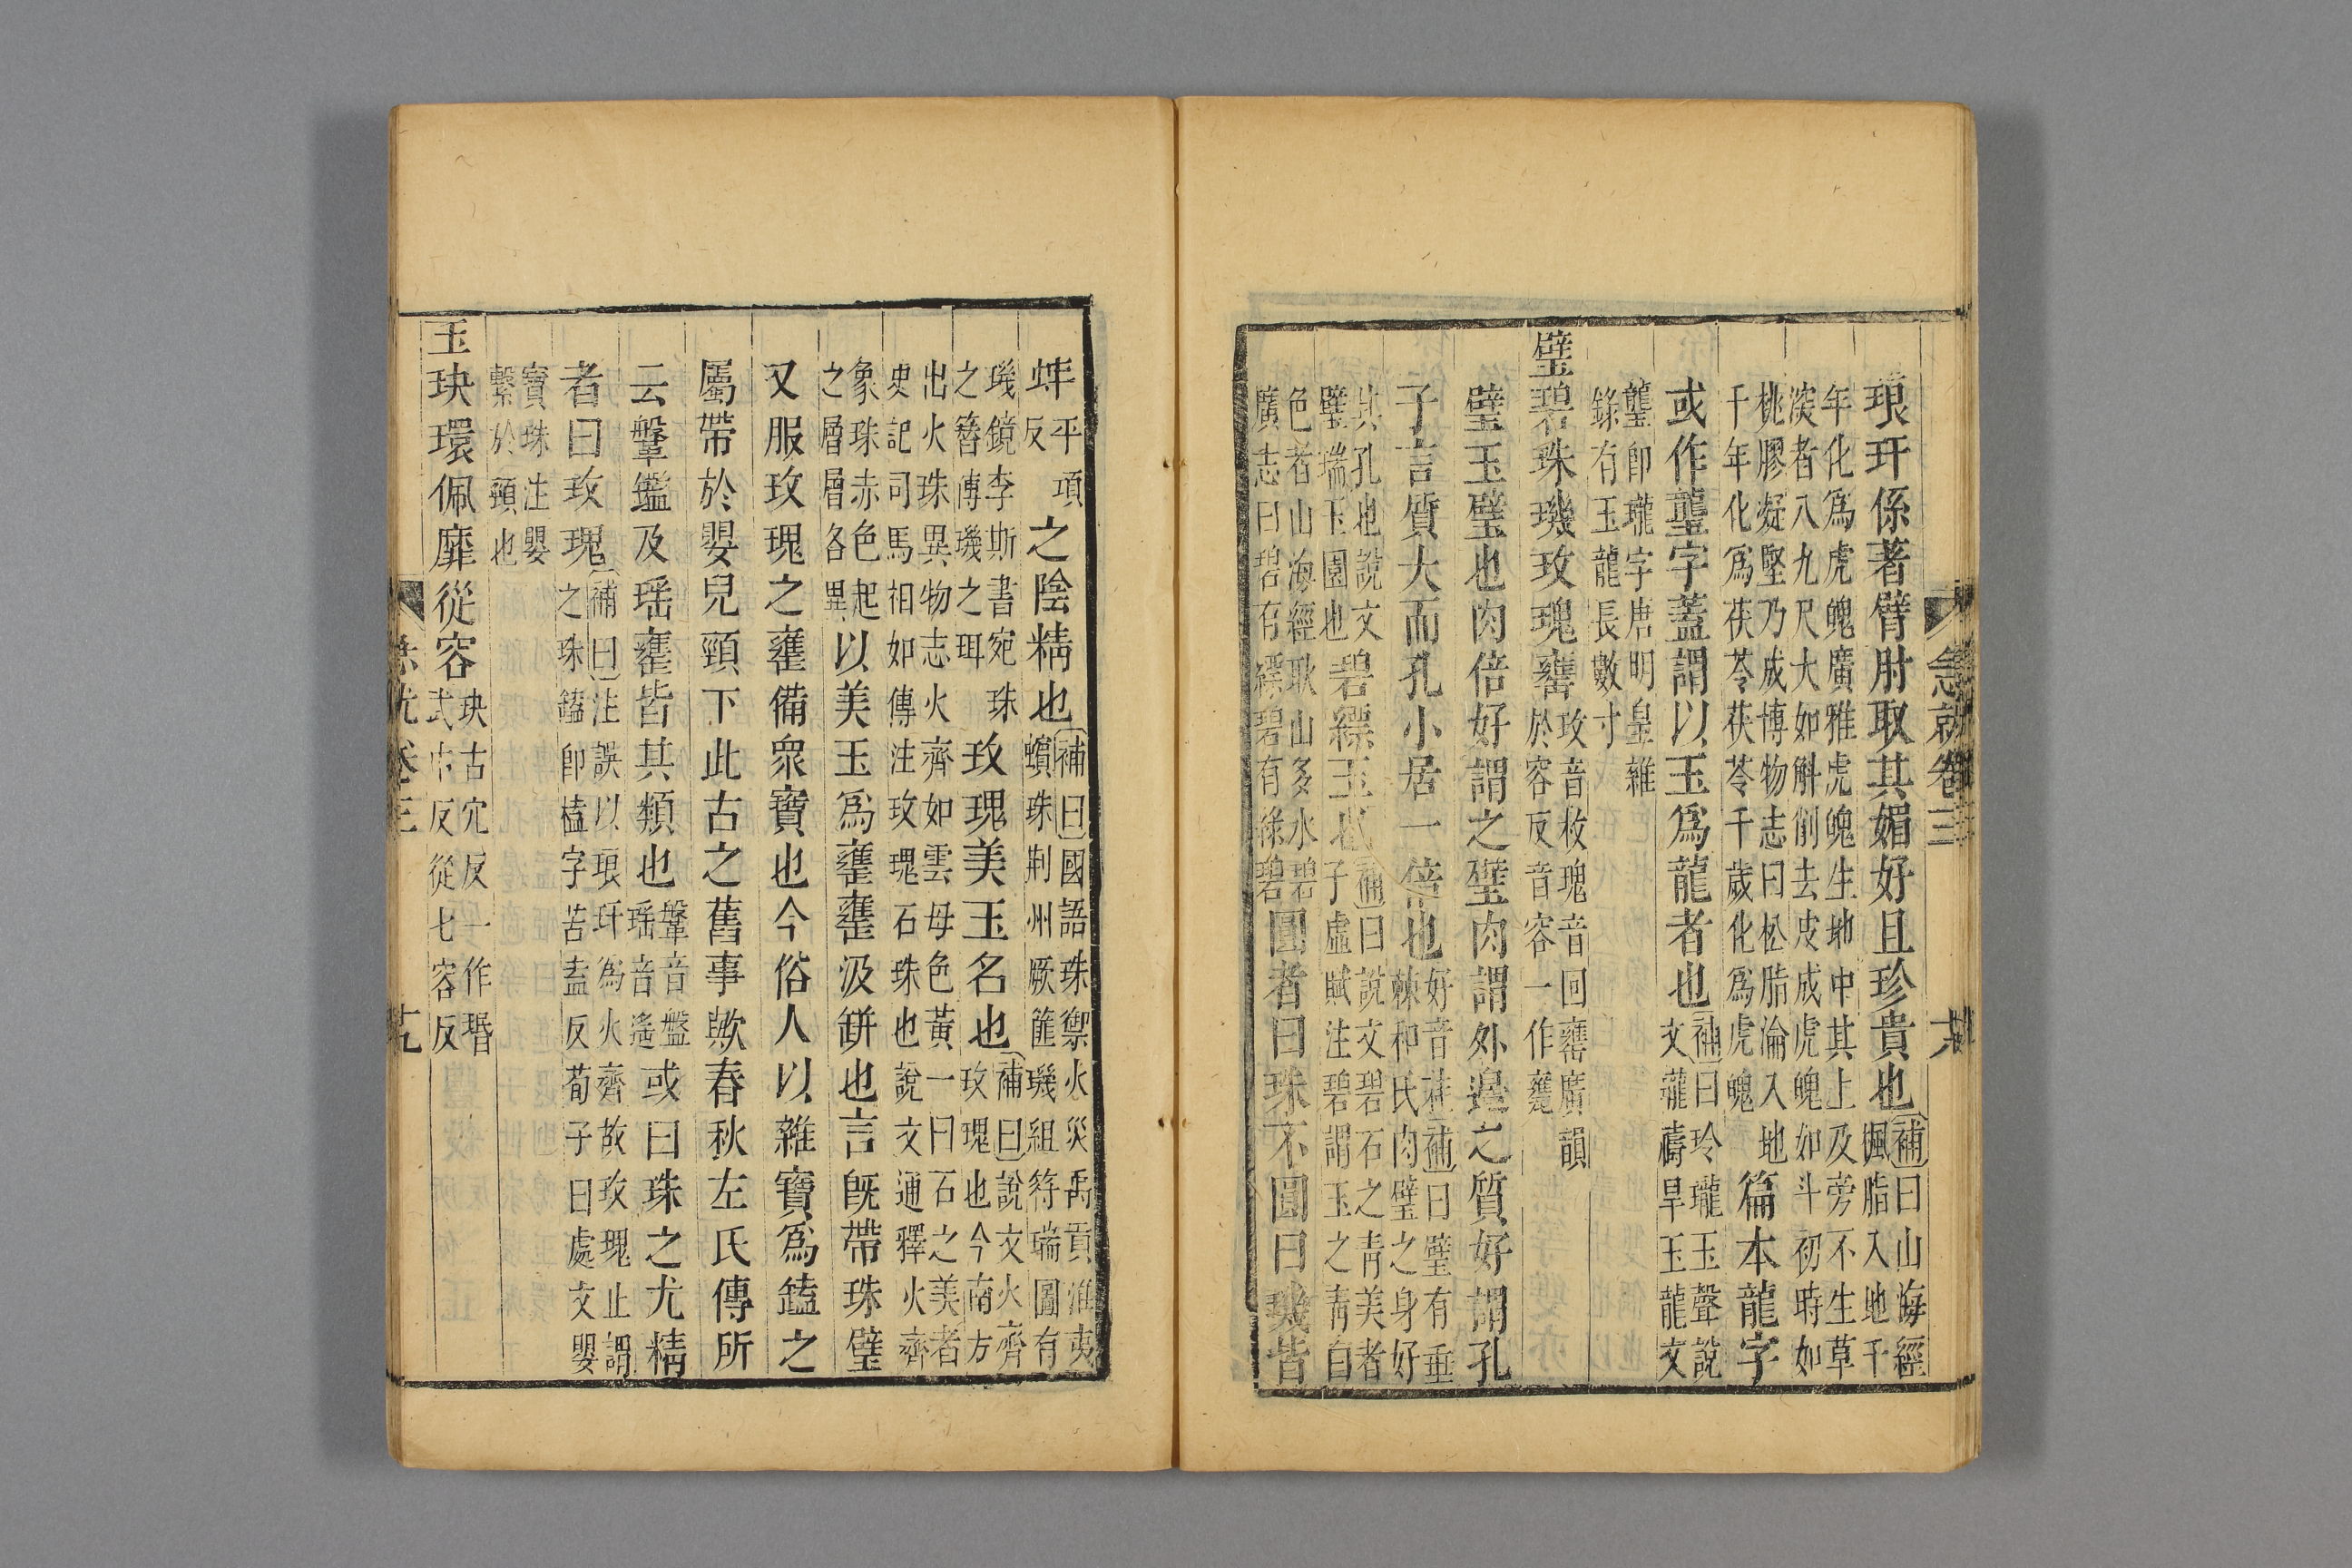 急就卷三
琅玕係著臂肘取其媚好且珍貴也補曰山海經楓脂入地千
年化爲虎魄廣雅虎魄生地中其上及旁不生草
淡者八九尺大如斛削去皮成虎魄如斗初時如
桃膠凝堅乃成博物志曰松脂淪入地
千年化爲茯苓茯苓千歲化爲虎魄篇本龍字
或作蠪字蓋謂以玉爲龍者也補曰玲瓏玉聲說
文瓏禱旱玉龍文
蠪卽瓏字唐明皇雜
錄有玉龍長數寸
璧碧珠璣玫瑰罋玫音枚瑰音回罋廣韻
於容反音容一作甕
璧玉璧也肉倍好謂之璧肉謂外邊之質好謂孔
子言質大而孔小居一倍也好音耗補曰璧有垂
棘和氏肉璧之身好
其孔也說文
璧瑞玉圜也碧縹玉也補曰說文碧石之靑美者
子虛賦注碧謂玉之靑白
色者山海經耿山多水碧
廣志曰碧有縹碧有綠碧圓者曰珠不圓曰璣皆
蚌平項反之陰精也補曰國語珠禦火災禹貢淮夷
蠙珠荆州厥篚璣組符瑞圖有
璣鏡李斯書宛珠
之簪傅璣之珥玫瑰美玉名也補曰說文火齊
玫瑰也今南方
出火珠異物志火齊如雲母色黃一曰石之美者
史記司馬相如傳注玫瑰石珠也說文通釋火齊
象珠赤色起
之層層各異以美玉爲罋罋汲缾也言旣帶珠璧
又服玫瑰之罋備衆寶也今俗人以雜寶爲䥈之
屬帶於嬰兒頸下此古之舊事歟春秋左氏傳所
云鞶鑑及瑶罋皆其類也鞶音盤
瑶音遙或曰珠之尤精
者曰玫瑰補曰注誤以琅玕爲火齊故玫瑰止謂
之珠䥈卽榼字苦盍反荀子曰處女嬰
寶珠注嬰
繫於頸也
玉玦環佩靡從容玦古穴反一作瑉
式巾反從七容反
急就卷三